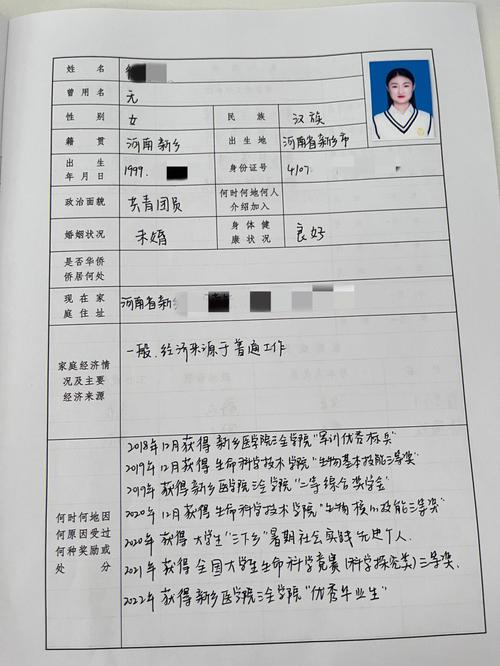 姓 名
曾用名 无
性 别 女 民 族 汉族
籍 贯 河南新乡 出 生 地 河南省新乡市
出 生
年 月 日 1999. 身份证号 4107
政治面貌 共青团员 何时何地何人
介绍加入
婚姻状况 未婚 身 体 健
康 状 况 良好
是否华侨
侨居何处
现 在 家
庭 住 址 河南省新乡
家庭经济情
况及主要
经济来源 一般,经济来源于普通工作
何时何地因
何原因受过
何种奖励或
处 分
2018年12月获得 新乡医学院三全学院"军训优秀标兵"
2019年12月获得 生命科学技术学院"生物基本技能三等奖"
2019年获得新乡医学院三全学院"二等综合奖学金"
2020年12月获得生命科学技术学院"生物核心技能三等奖"
2020年获得大学生"三下乡"暑期社会实践先进个人.
2021年获得全国大学生生命科学竞赛(科学探究类)三等奖.
2022年获得新乡医学院三全学院"优秀毕业生"